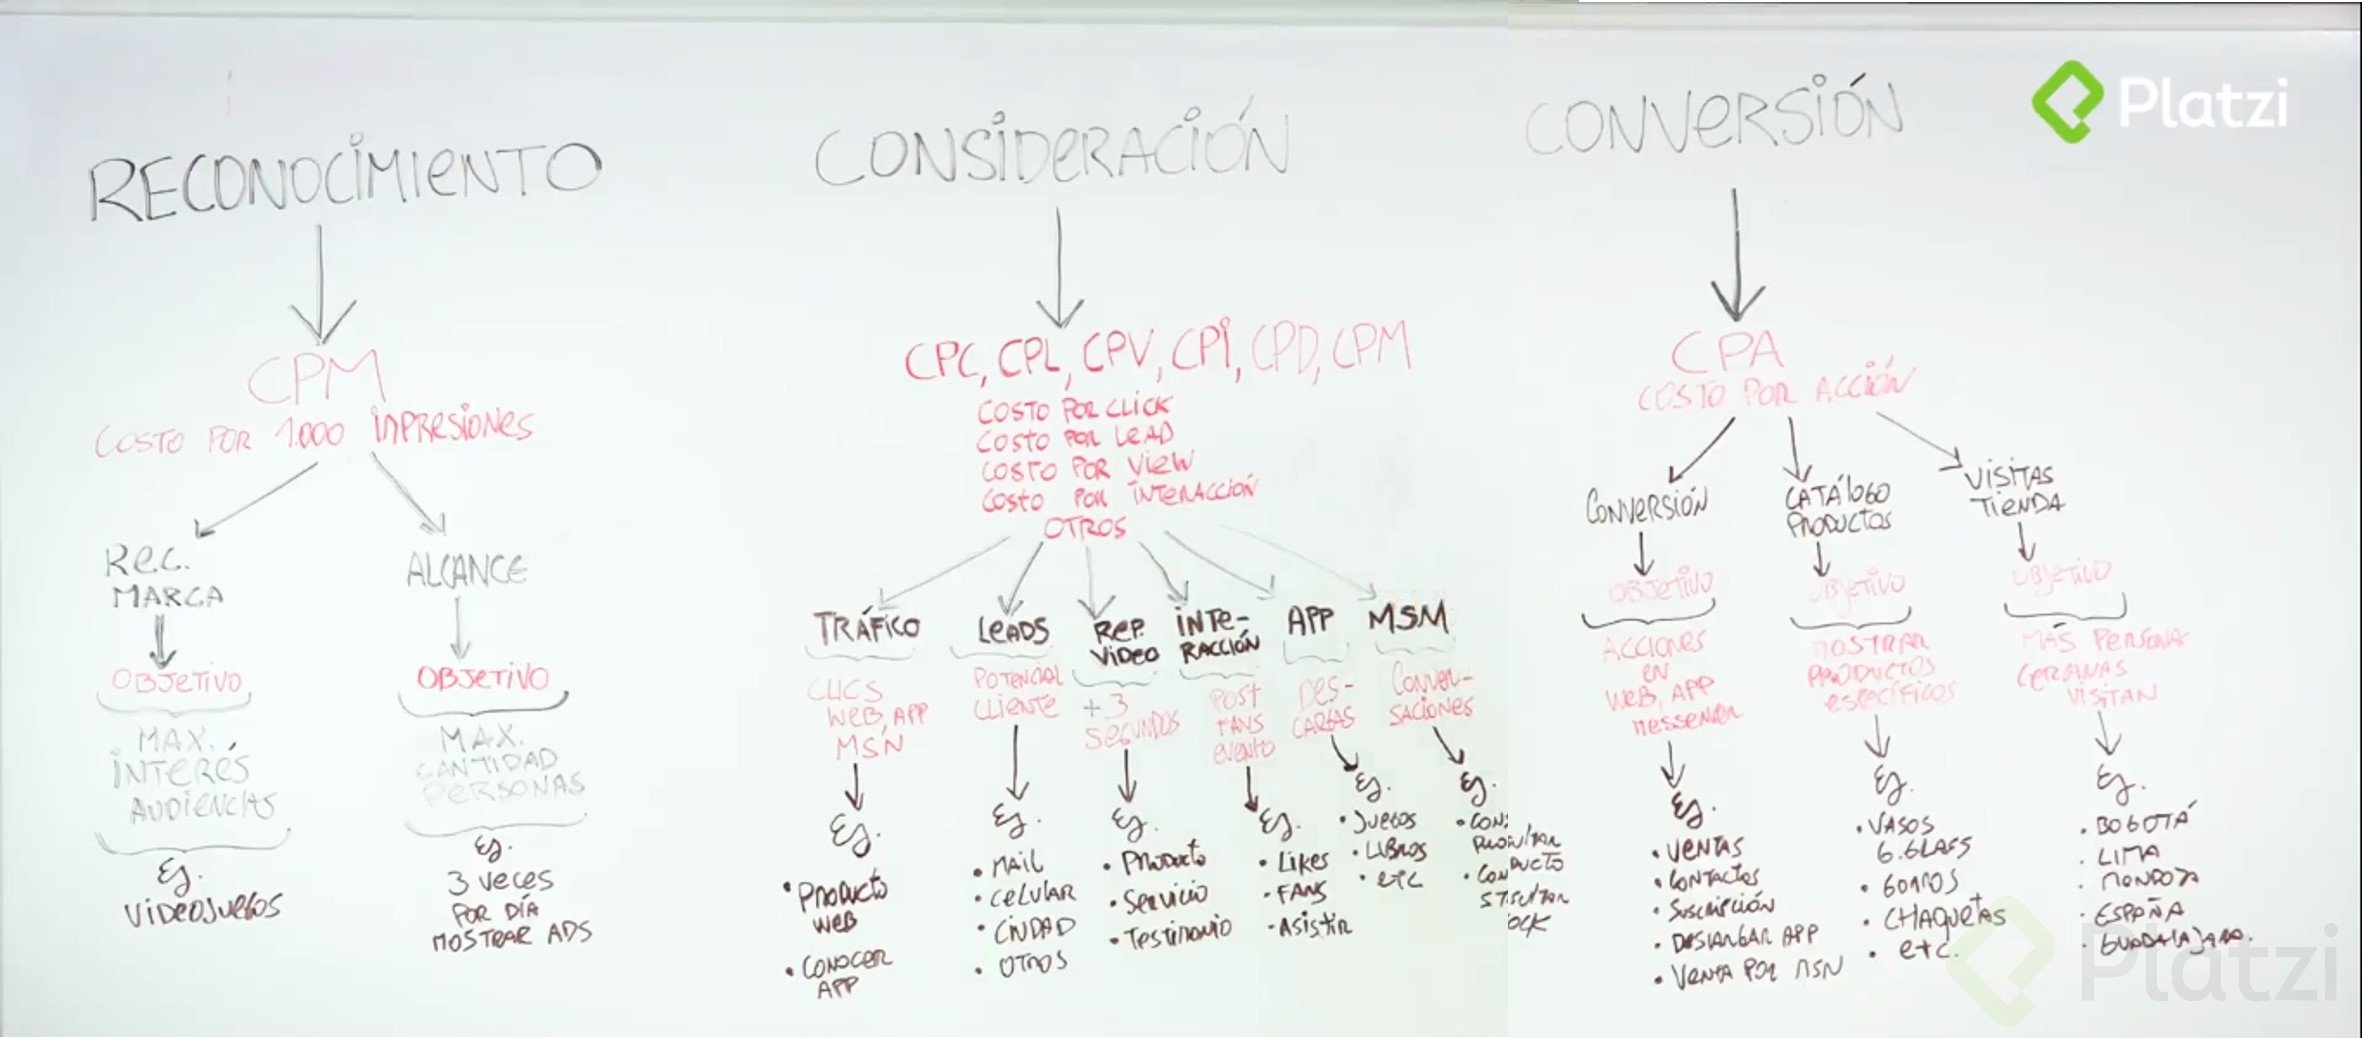 RECONOCIMIENTO
CPM
COSTO POR 1.000 INPRESIONES
REC.
MARCA
OBJETIVO
MAX.
INTERÉS
AUDIENCIAS
Ej.
VIDEOJUEGOS
ALCANCE
OBJETIVO
MAX.
CANTIDAD
PERSONAS
Ej.
3 VECES
POR DÍA
MOSTRAR ADS
CONSIDERACIÓN
CPC, CPL, CPV, CPI, CPD, CPM
COSTO POR CLICK
COSTO POR LEAD
COSTO POR VIEW
COSTO POR INTERACCIÓN
OTROS
TRÁFICO
CLICS
WEB, APP
MSN
Ej.
• PRODUCTO
WEB
• CONOCER
APP
LEADS
POTENCIAL
CLIENTE
Ej.
• MAIL
• CELULAR
• CIUDAD
• OTROS
REP.
VIDEO
+3
SEGUNDOS
Ej.
• PRODUCTO
• SERVICIO
• TESTIMONIO
INTE-
RACCIÓN
POST
FANS
EVENTO
Ej.
• LIKES
• FANS
• ASISTIR
APP
DES-
CARGAS
Ej.
• JUEGOS
• LIBROS
• ETC
MSM
CONVER-
SACIONES
Ej.
CONVERSIÓN
CPA
COSTO POR ACCIÓN
CONVERSIÓN
OBJETIVO
ACCIONES
EN
WEB, APP
MESSENGER
Ej.
• VENTAS
• CONTACTOS
• SUSCRIPCIÓN
• DESCARGAR APP
• VENTA POR MSN
CATÁLOGO
PRODUCTOS
OBJETIVO
MOSTRAR
PRODUCTOS
ESPECÍFICOS
Ej.
• VASOS
• GORROS
• CHAQUETAS
• etc.
VISITAS
TIENDA
OBJETIVO
MÁS PERSONAS
CERCANAS
VISITAN
Ej.
• BOGOTÁ
• LIMA
• MENDOZA
• ESPAÑA
• GUADALAJARA.
Platzi
Platzi